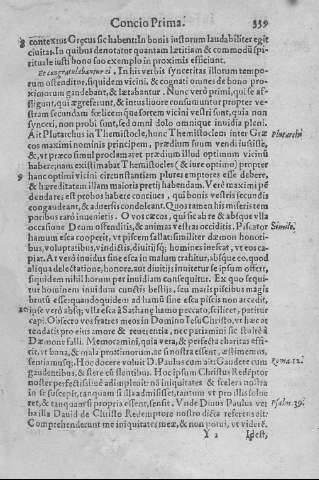 Concio Prima. 339
contextus Græcus sic habent: In bonis iustorum laudabiliter egit
ciuitas. In quibus denotatur quantam lætitiam & commodū spi-
rituale iusti bono suo exemplo in proximis efficiunt.
Et congratulabantur ei. In his verbis synceritas illorum tempo-
rum ostenditur, siquidem vicini, & cognati omnes de bono pro-
ximorum gaudebant, & lætabantur. Nunc verò primi, qui se af-
fligunt, qui ægreferunt, & intus liuore consumuntur propter ve-
stram secundam fœlicemque sortem vicini vestri sunt, quia non
synceri, non probi sunt, sed omni dolo omnique inuidia pleni.
Ait Plutarchus in Themistocle, hunc Themistoclem inter Græ Plutarchi
cos maximi nominis principem, prædium suum vendi iussisse,
&, vt præco simul proclamaret prædium illud optimum vicinū
habere; nam existimabat Themistocles (& iure optimo) propter
hanc optimi vicini circunstantiam plures emptores esse debere,
& hæreditatem illam maioris pretij habendam. Verè maximi pē
dendares est probos habere conciues, qui bonis vestris secundis
congaudeant, & aduersis condoleant. Quos tamen his miseris tem
poribus rarò inuenietis. O vos cæcos, qui sic ab re & absque vlla
occasione Deum offenditis, & animas vestras occiditis. Piscator Simile.
hamum esca cooperit, vt piscem fallat: similiter dæmon honori-
bus, voluptatibus, vindictis, diuitijsq; homines inescat, vt eos ca-
piat. At verò inuidus sine esca in malum trahitur, absque eo, quod
aliqua delectatione, honore, aut diuitijs inuitetur se ipsum offert,
siquidem nihil horum per inuidiam consequitur. Ex quo sequi-
tur hominem inuidum cunctis bestijs, seu maris piscibus magis
brutū esse: quandoquidem ad hamū sine esca piscis non accedit,
ipse verò absq; vlla esca à Sathanę hamo peccato, scilicet, patitur
capi. Obsecro vos fratres mei in Domino Iesu Christo, vt hæc at
tendatis pro eius amore & reuerentia, nec patiamini sic stulte à
Dæmone falli. Memoramini, quia vera, & perfecta charitas effi-
cit, vt bona, & mala proximorum ac si nostra essent, æstimemus,
sentiamusq;. Hoc docere voluit D. Paulus cum ait: Gaudere cum Roma. 12.
gaudentibus, & flere cū flentibus. Hoc ipsum Christus Redēptor
noster perfectissimè adimpleuit: nā iniquitates & scelera nostra
in se suscepit, tanquam si illa admisisset, tantum vt pro illis solue
ret, & tanquam si propria essent, sensit. Vnde Diuus Paulus ver Psalm. 39.
ba illa Dauid de Christo Redemptore nostro dicta referens ait:
Comprehenderunt me iniquitates meæ, & non potui, vt viderē.
Y 2 Idest,